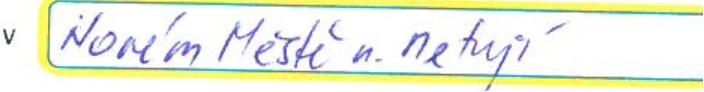 v Novém Městě n. Metují